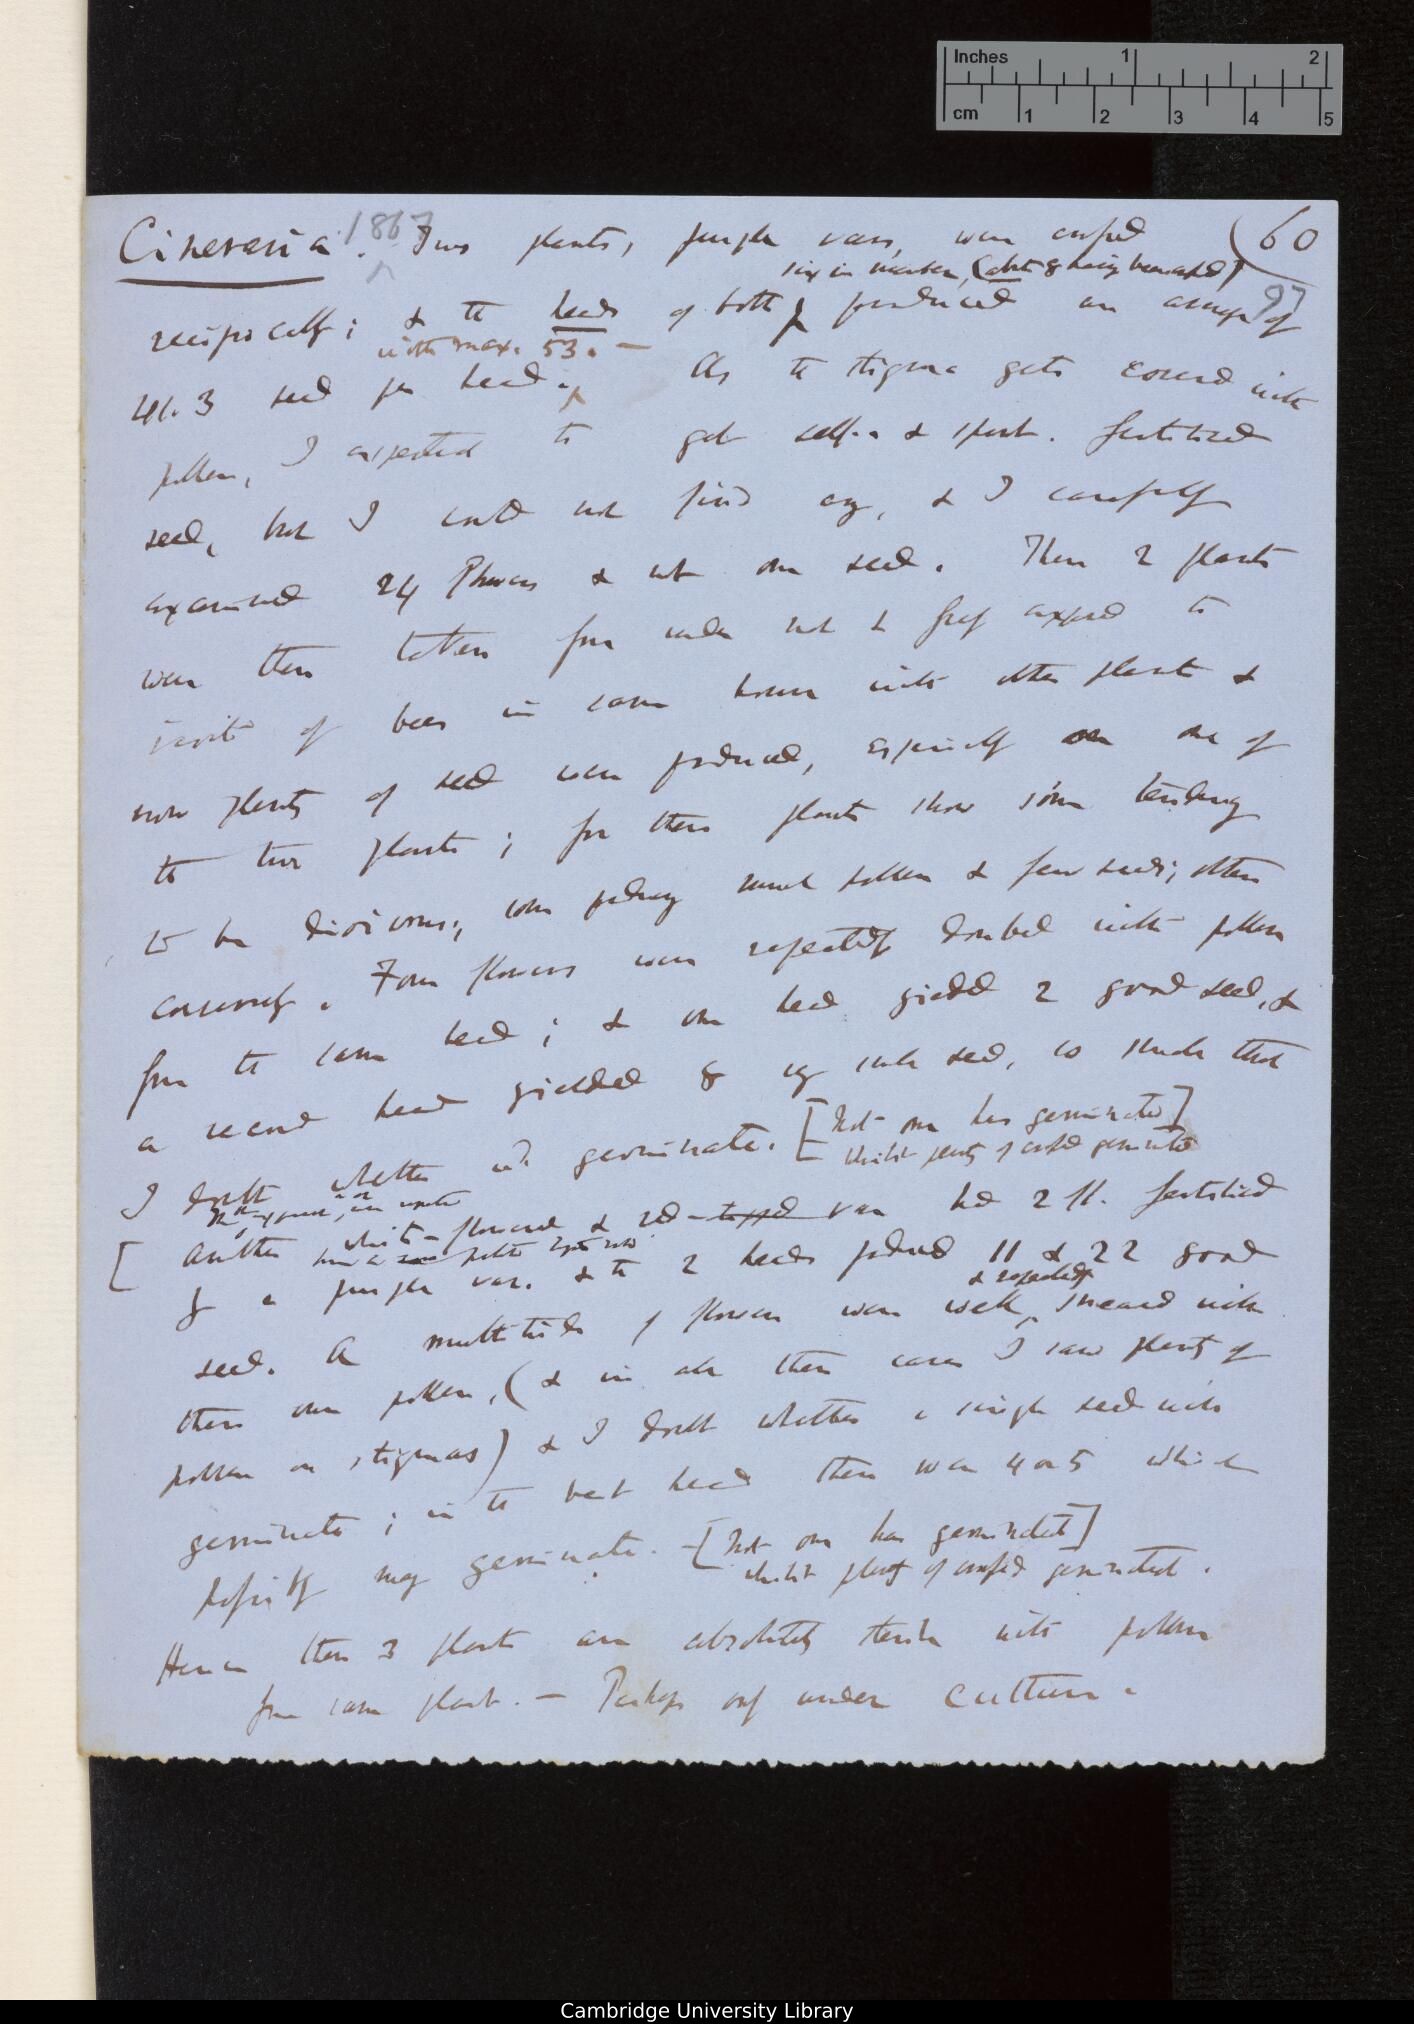 Inches 1 2
cm 1 2 3 4 5
Cineraria. 1867 Two plants, purple vars, were crossed (60
six in number, (about 8 having been crossed) 97
reciprocally; & the heads of both produced an average of
with max. 53. —
41.3 seed per head. As the stigma gets covered with
pollen, I expected to get self. & spont. fertilised
seed, but I could not find any, & I carefully
examined 24 flowers & not one seed. These 2 plants
were then taken from under net & freely exposed to
visits of bees in same house with other plants &
now plenty of seed were produced, especially on one of
the two plants; for these plants show some tendency
to be dioicous; some producing much pollen & few seeds; others
conversely. Four flowers were repeatedly daubed with pollen
from the same head; & one head yielded 2 good seed, &
a second head yielded 8 seed, so
I doubt whether will germinate. [Not one has germinated]
whilst plenty of crossed germinated
[Another white-flowered & red-tipped var. had 2 fl. fertilised
by a purple var. & the 2 heads produced 11 & 22 good
& repeatedly
seed. A multitude of flowers were well smeared with
their own pollen, (& in all these cases I saw plenty of
pollen on stigmas) & I doubt whether a single seed will
germinate; in the best head there were 4 or 5 which
possibly may germinate. — [Not one has germinated]
whilst plenty of crossed germinated.
Hence these 3 plants are absolutely sterile with pollen
from same plant. — Perhaps only under culture.
Cambridge University Library